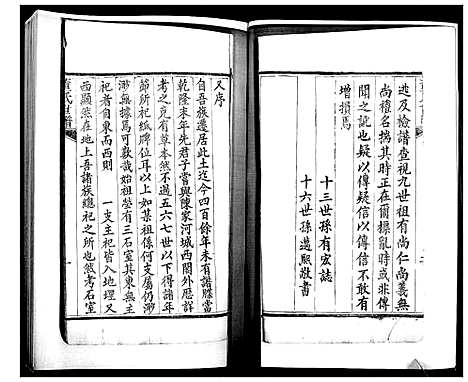 述及檢譜查視九世祖有尚仁尚義無
尚權名揣其時正在爾擾亂時或非傳
聞之訛也疑以傳疑信以傳信不敢有
增損焉
十三世孫有宏誌
十六世孫邁熙敬書
又序
自吾族遷居此土迄今四百餘年未有譜牒當
乾隆末年先君子嘗與陳家河城西關外歷詳
考之竟有草本然不過五六七世以下得諸年
節所祀紙牌位耳以上如某祖係何支屬仍渺
渺無據焉可歎哉始祖塋有三石室其東無主
祀者自東而西則 一支主祀皆入地理又
西顯然在地上吾諸族總祀之所也然考石室